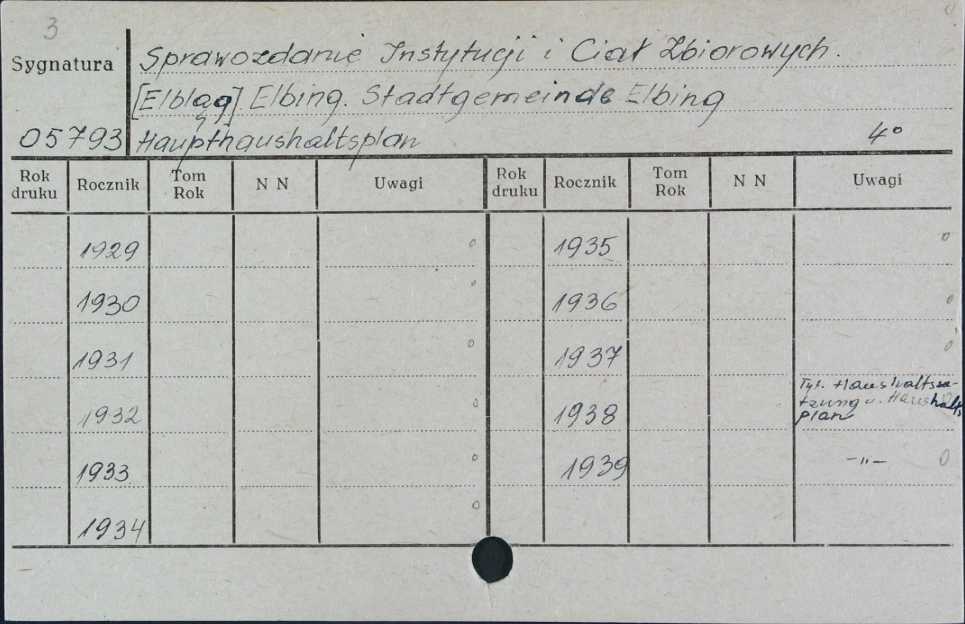 3
Sygnatura
Sprawozdanie Instytucji i Ciał Zbiorowych.
[Elbląg]. Elbing. Stadtgemeinde Elbing
05793 Haupthaushaltsplan 4°
Rok druku Rocznik Tom Rok N N Uwagi Rok druku Rocznik Tom Rok N N Uwagi
1929 o 1935 o
1930 o 1936 o
1931 o 1937 o
Tyt. Haushaltssa-
tzung u. Haushalts
plan
1932 o 1938
1933 o 1939 –"– o
1934 o